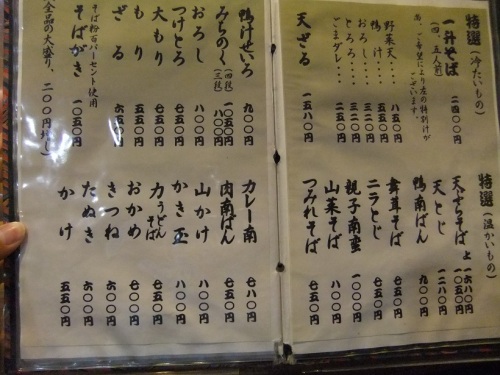 特選（冷たいもの）
一升そば 二四〇〇円
（四、五人前）
尚、ご希望により左の特別汁が
ございます。
野菜天‥‥八五〇円
鴨汁‥‥五二〇円
おろし‥‥三二〇円
とろろ‥‥三二〇円
ごまダレ‥‥二五〇円
天ざる 一五八〇円
鴨汁せいろ 九〇〇円
みちのく（四段）一〇五〇円
（三段）八〇〇円
おろし 八〇〇円
つけとろ 七五〇円
大もり 七五〇円
もり 五五〇円
ざる 六五〇円
そば粉百パーセント使用
そばがき 一〇五〇円
（全品の大盛り、二〇〇円増し）
特選（温かいもの）
天ぷらそば 上一六八〇円
天とじ 一二八〇円
鴨南ばん 九五〇円
舞茸そば 七五〇円
ニラとじ 七五〇円
親子南蛮 一〇〇〇円
山菜そば 七五〇円
つみれそば 七五〇円
カレー南 七八〇円
肉南ばん 七五〇円
山かけ 八〇〇円
かき玉 七〇〇円
力うどんそば 八〇〇円
おかめ 七五〇円
きつね 六〇〇円
たぬき 六〇〇円
かけ 五五〇円